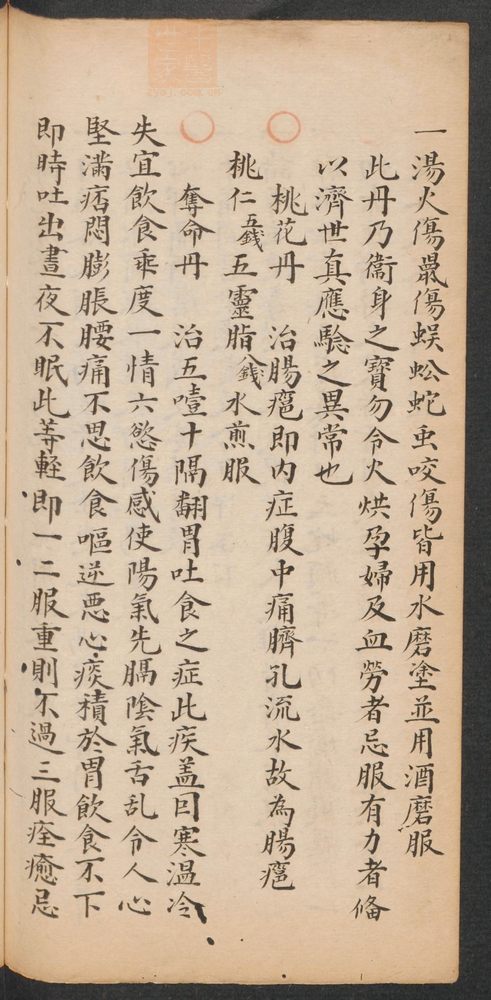 一湯火傷鼠傷蜈蚣蛇虫咬傷皆用水磨塗並用酒磨服
此丹乃衛身之寶勿令火烘孕婦及血勞者忌服有力者俻
以濟世真應驗之異常也
○桃花丹　治腸癰即内症腹中痛臍孔流水故為腸癰
桃仁五錢五靈脂八錢水煎服
○奪命丹　治五噎十隔翻胃吐食之症此疾盖因寒温冷
失宜飲食乖度一情六慾傷感使陽氣先膈陰氣舌乱令人心
堅满痞悶膨脹腰痛不思飲食嘔逆悪心痰積於胃飲食不下
即時吐出晝夜不眠此䓁軽即一二服重則不過三服痊癒忌